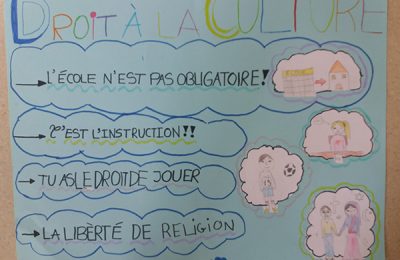 DROIT À LA CULTURE
→ L'ÉCOLE N'EST PAS OBLIGATOIRE !
→ C'EST L'INSTRUCTION !!
→ TU AS LE DROIT DE JOUER
→ LA LIBÈRTÉ DE RELIGION